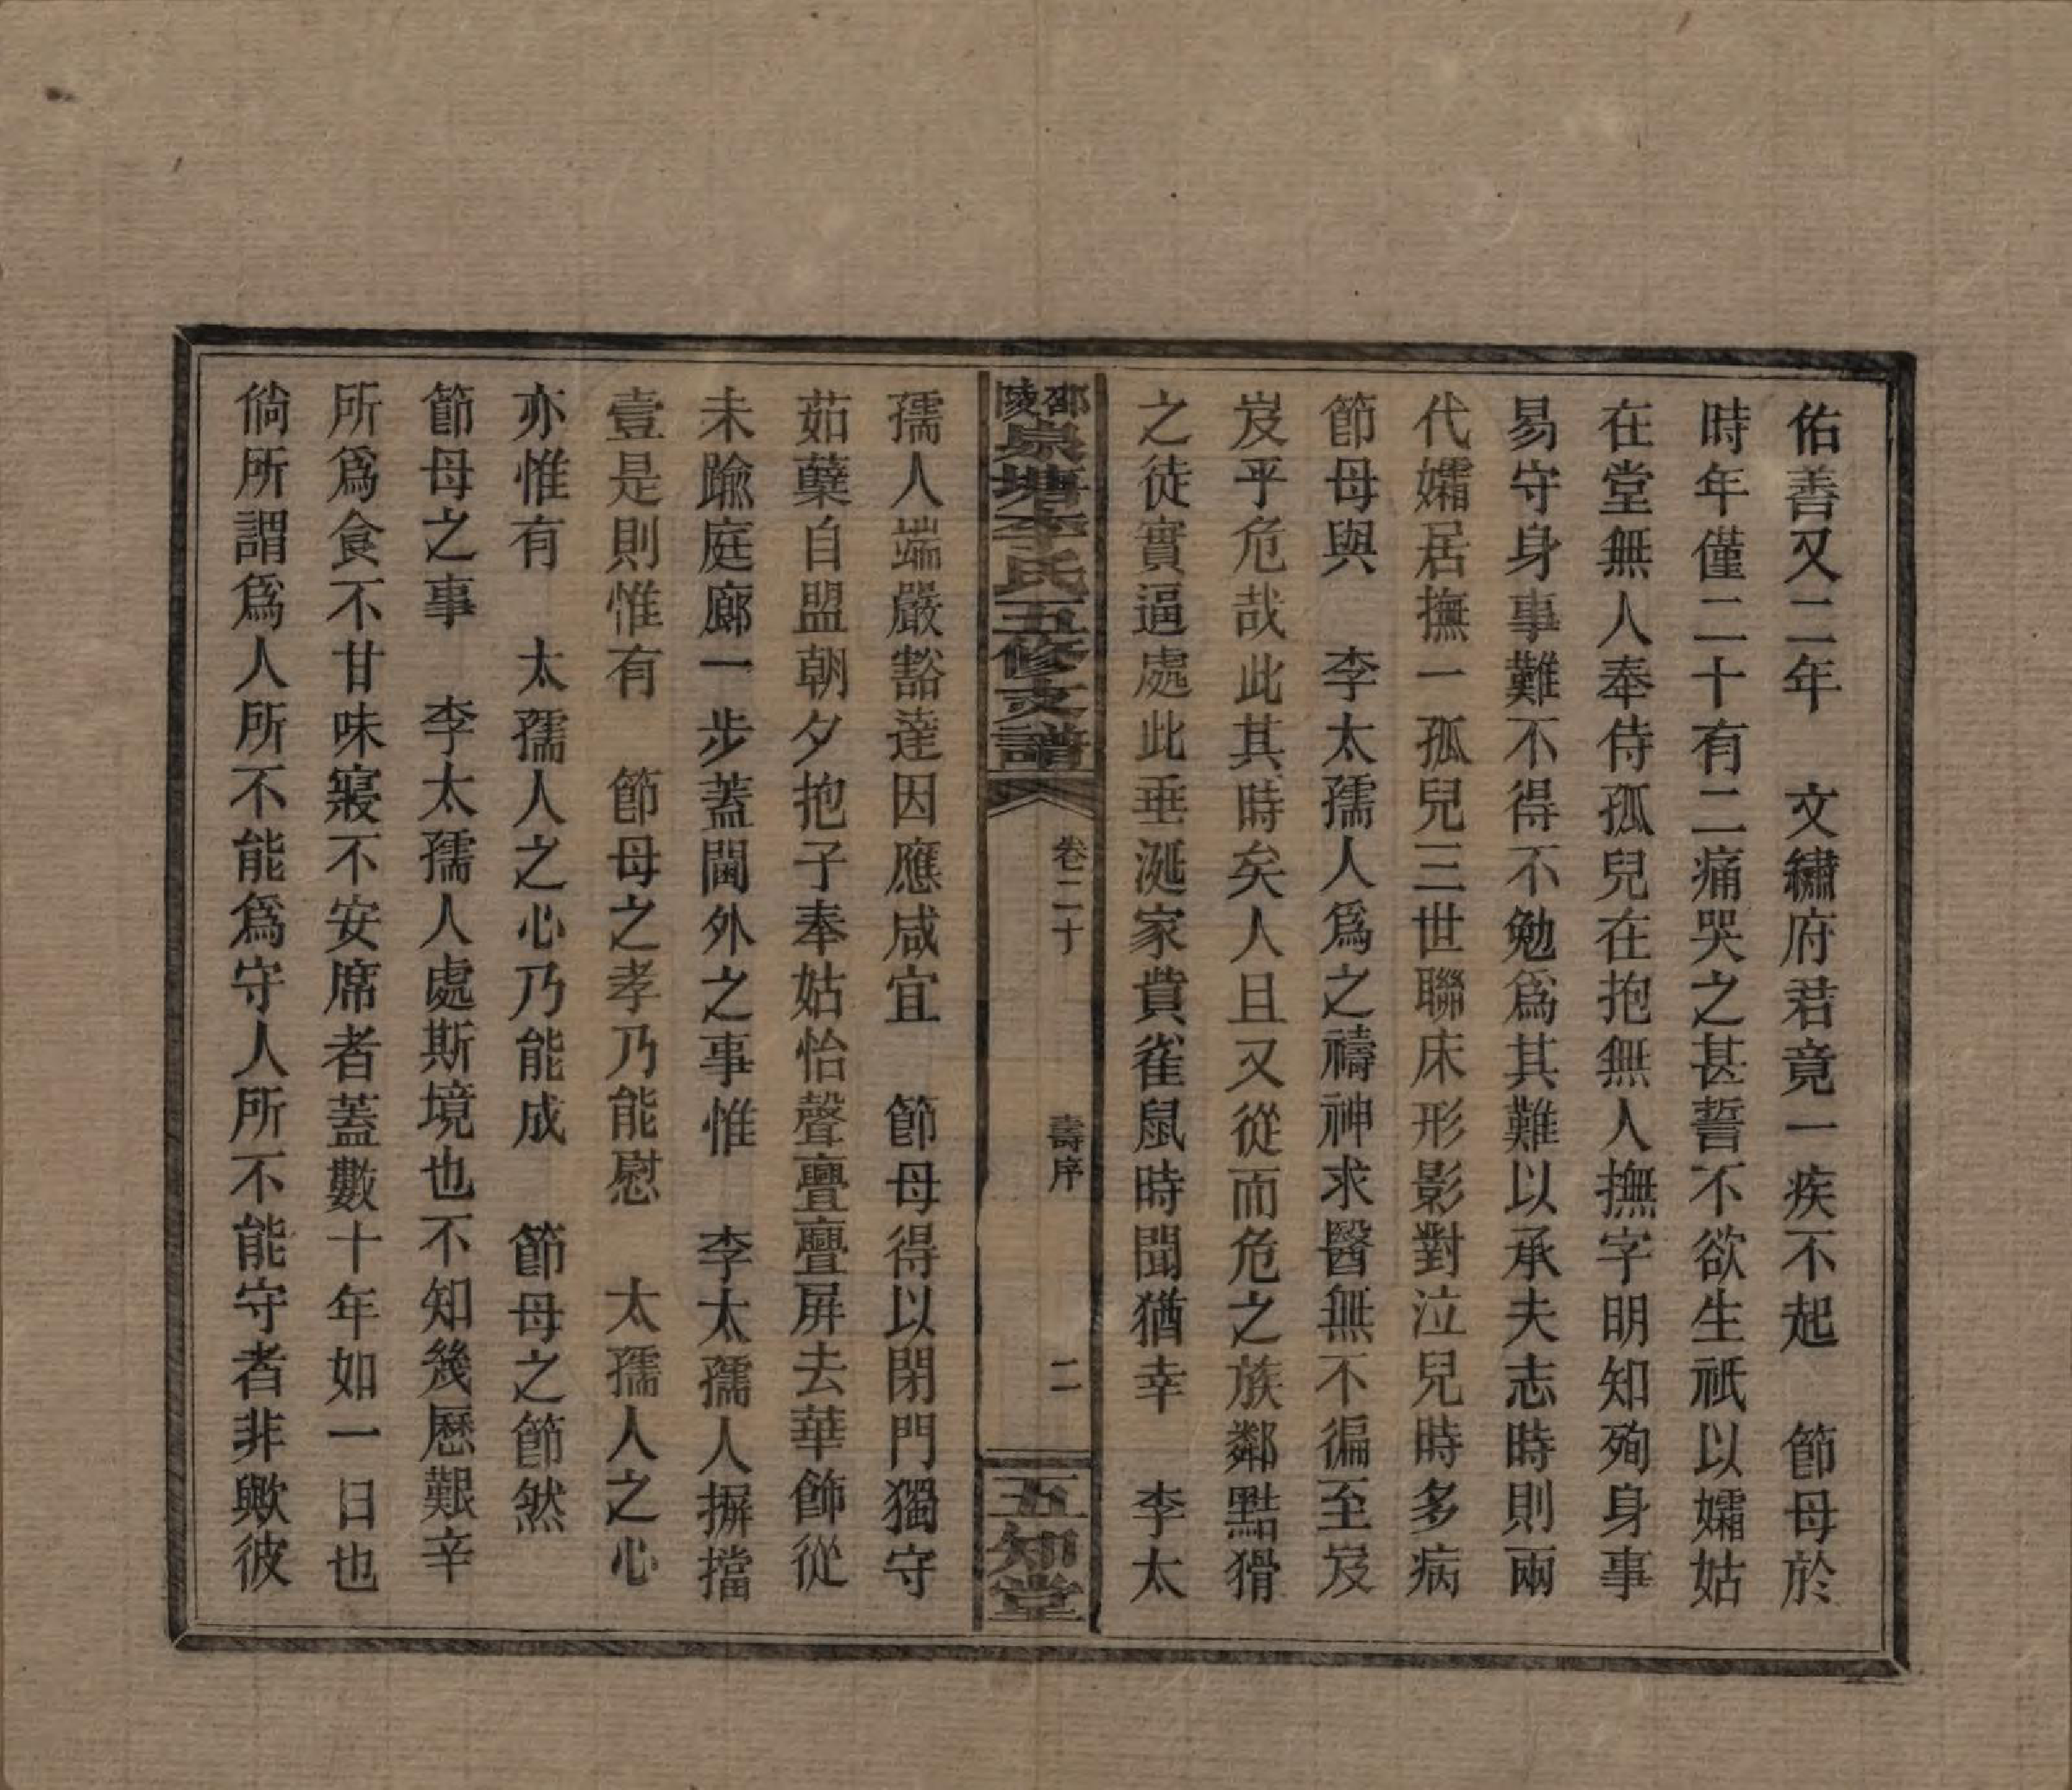 佑善又二年　文繡府君竟一疾不起　節母於
時年僅二十有二痛哭之甚誓不欲生祇以孀姑
在堂無人奉侍孤兒在抱無人撫字明知殉身事
易守身事難不得不勉爲其難以承夫志時則兩
代孀居撫一孤兒三世聯床形影對泣兒時多病
節母與　李太孺人爲之禱神求醫無不徧至岌
岌乎危哉此其時矣人且又從而危之族鄰點猾
之徒實逼處此垂涎家貲雀鼠時聞猶幸　李太
邵陵泉塘李氏五修支譜
卷二十
壽序
二
五知堂
孺人端嚴豁達因應咸宜　節母得以閉門獨守
茹蘗自盟朝夕抱子奉姑怡聲亹亹屏去華飾從
未踰庭廊一步蓋閫外之事惟　李太孺人摒擋
壹是則惟有　節母之孝乃能慰　太孺人之心
亦惟有　太孺人之心乃能成　節母之節然
節母之事　李太孺人處斯境也不知幾歷艱辛
所爲食不甘味寢不安席者蓋數十年如一日也
倘所謂爲人所不能爲守人所不能守者非歟彼